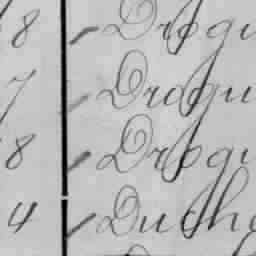 8 Drogu
7 Drogu
8 Drogu
4 Duche